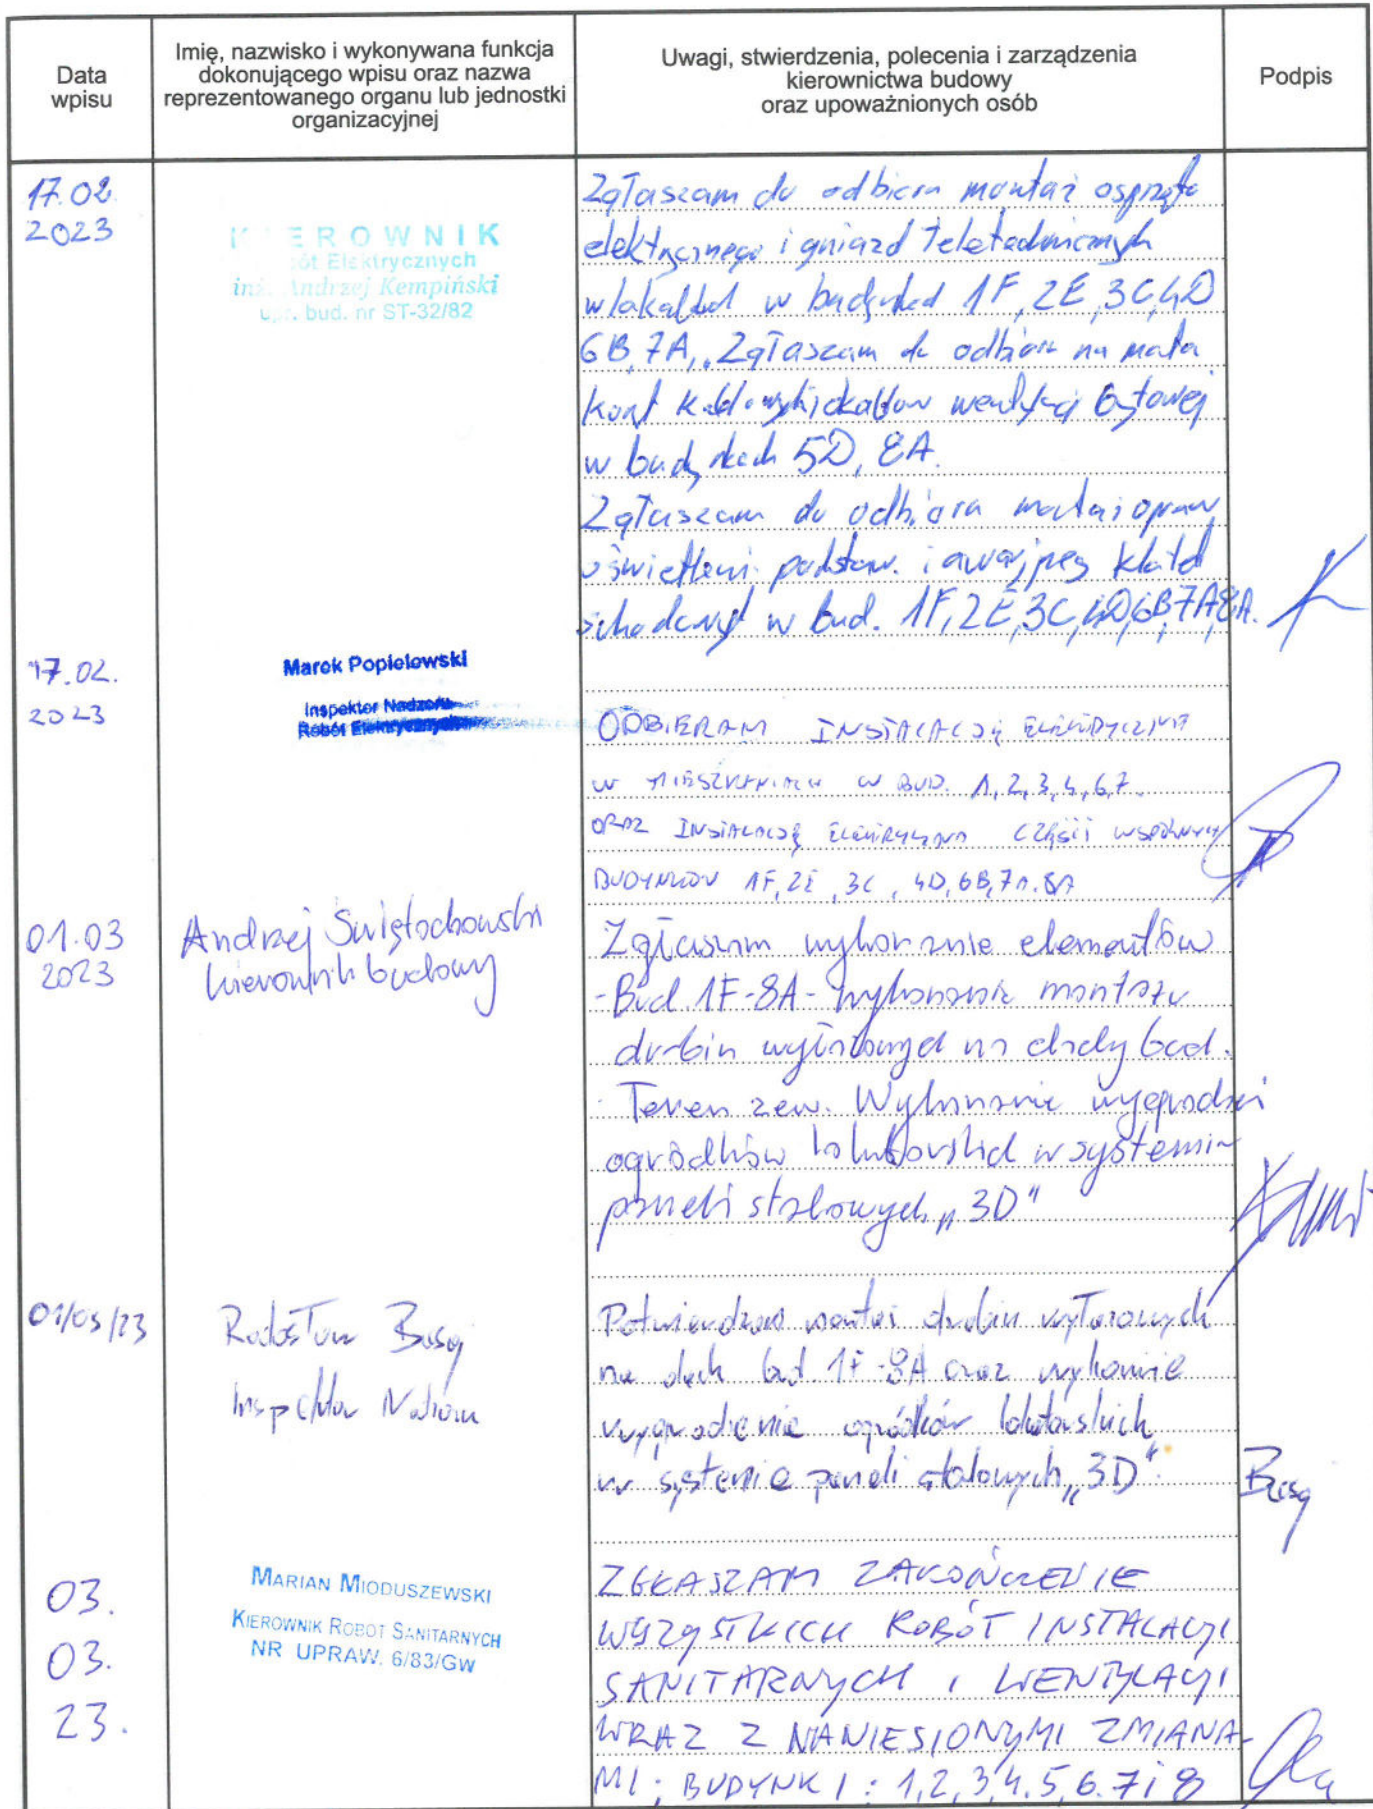 Data
wpisu
Imię, nazwisko i wykonywana funkcja
dokonującego wpisu oraz nazwa
reprezentowanego organu lub jednostki
organizacyjnej
Uwagi, stwierdzenia, polecenia i zarządzenia
kierownictwa budowy
oraz upoważnionych osób
Podpis
17.02
2023
KIEROWNIK
Robót Elektrycznych
inż. Andrzej Kempiński
upr. bud. nr ST-32/82
Zgłaszam do odbioru montaż osprzętu
elektrycznego i gniazd teletechnicznych
w lokalach w budynkach 1F, 2E, 3C, 4D
6B, 7A, Zgłaszam do odbioru
wentylacji bytowej
w budynkach 5D, 8A.
Zgłaszam do odbioru montaż opraw
oświetleni podstaw. i awaryjneg klatek
schodowych w bud. 1F, 2E, 3C, 4D, 6B, 7A, 8A.
17.02.
2023
Marek Popielowski
Inspektor Nadzoru
Robót Elektrycznych
ODBIERAM INSTALACJĘ ELEKTRYCZNĄ
W MIESZKANIACH W BUD. 1, 2, 3, 4, 6, 7.
ORAZ INSTALACJĘ ELEKTRYCZNĄ CZĘŚCI WSPÓLNYCH
BUDYNKÓW 1F, 2E, 3C, 4D, 6B, 7A, 8A
01.03
2023
Andrzej Świętochowski
kierownik budowy
Zgłaszam wykonanie elementów
- Bud. 1F-8A - wykonanie montażu
drabin wyłazowych na dachy bud.
- Teren zew. Wykonanie wygrodzeń
ogródków lokatorskich w systemie
paneli stalowych „3D"
01/03/23
Radosław
Inspektor Nadzoru
Potwierdzam montaż drabin wyłazowych
na dach bud. 1F-8A oraz wykonanie
wygrodzenie ogródków lokatorskich
w systemie paneli stalowych „3D".
03.
03.
23.
MARIAN MIODUSZEWSKI
KIEROWNIK ROBÓT SANITARNYCH
NR UPRAW. 6/83/GW
ZGŁASZAM ZAKOŃCZENIE
WSZYSTKICH ROBÓT INSTALACJI
SANITARNYCH I WENTYLACJI
WRAZ Z NANIESIONYMI ZMIANA-
MI; BUDYNKI: 1, 2, 3, 4, 5, 6, 7 i 8